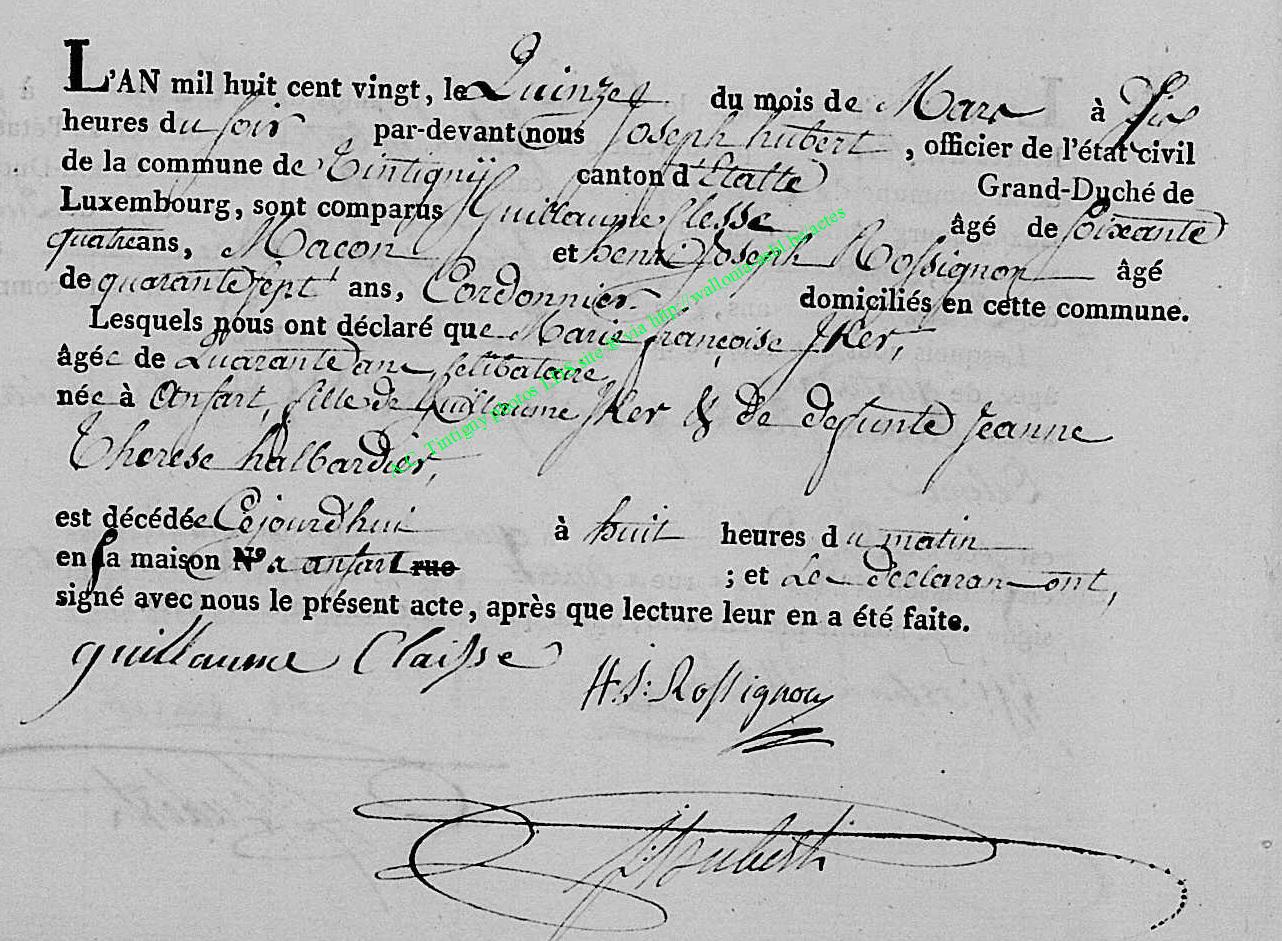 L'AN mil huit cent vingt, le Quinze du mois de Mars à Six
heures du soir par-devant nous Joseph hubert, officier de l'état civil
de la commune de Tintignÿ canton d'Etalle Grand-Duché de
Luxembourg, sont comparus Guillaume Clesse âgé de soixante
quatre ans, Macon et henri Joseph Rossignon âgé
de quarante sept ans, Cordonnier domiciliés en cette commune.
Lesquels nous ont déclaré que Marie françoise Jker,
âgée de Quarante ans, selibataire,
née à Ansart, fille de Guillaume Jker & de defunte Jeanne
Therese halbardier,
est décédée Cejourd'hui à huit heures du matin
en sa maison N.º a ansart rue ; et Les déclarans ont,
signé avec nous le présent acte, après que lecture leur en a été faite.
guillaume Claisse
H.J: Rossignon
J. Hubert
A.C. Tintigny photos LDS site & via http://wallonia-asbl.be/actes